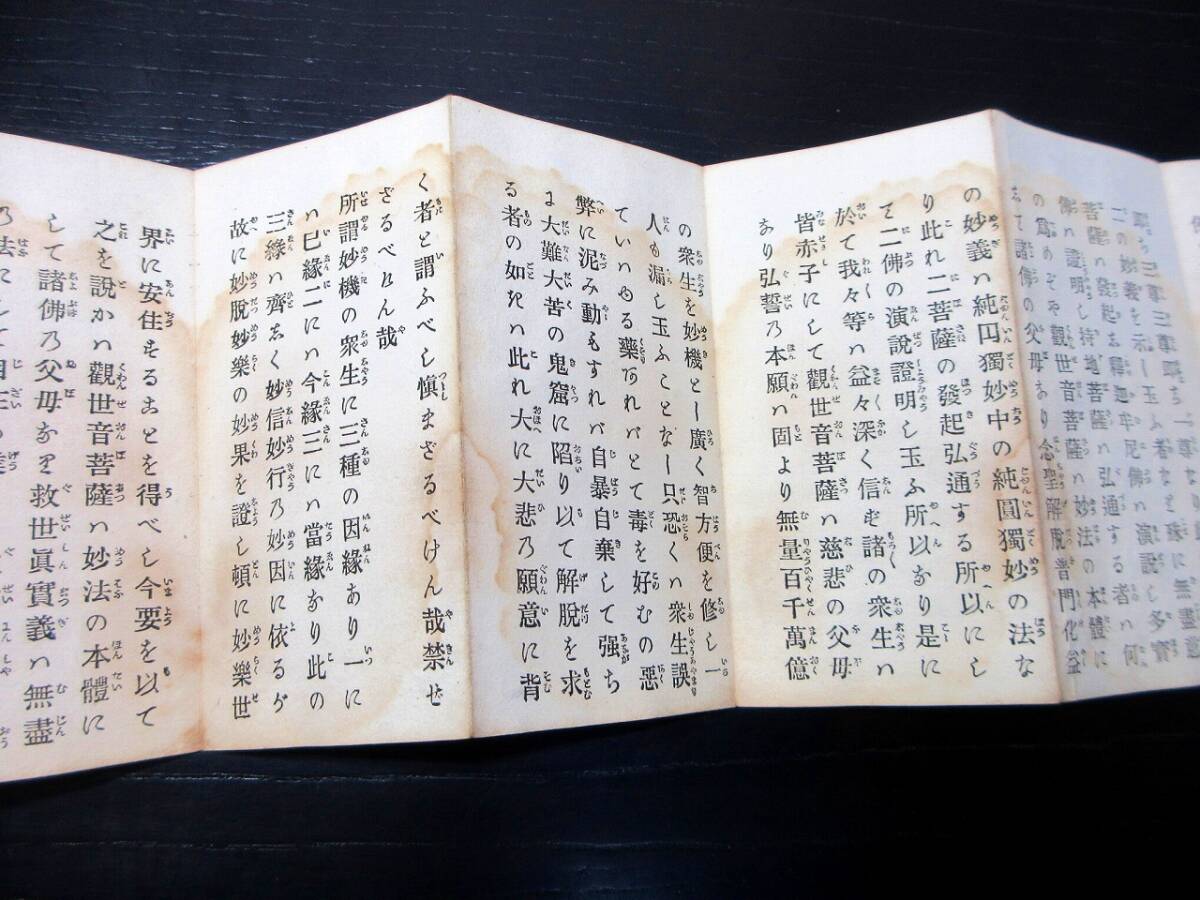 即ち三尊三即ち一尊な
二の妙義を示し玉ふ者なり殊に無盡意
菩薩の發起は釋迦牟尼佛の演說し多寶
佛の證明し持地菩薩の弘通する者は何
の爲めぞや觀世音菩薩は妙法の本體に
して諸佛の父母なり念聖解脫普門化益
の妙義は純円獨妙中の純圓獨妙の法な
り此れ二菩薩の發起弘通する所以にし
て二佛の演說證明し玉ふ所以なり是に
於て我々等は益々深く信ず諸の衆生は
皆赤子にして觀世音菩薩は慈悲の父母
なり弘誓の本願は固より無量百千萬億
の衆生を妙機とし廣く智方便を修し一
人も漏し玉ふことなし只恐くは衆生誤
ていはゆる藥あればとて毒を好むの惡
弊に泥み動もすれば自暴自棄して强ち
に大難大苦の鬼窟に陷り以て解脫を求
る者の如きは此れ大に大悲の願意に背
く者と謂ふべし愼まざるべけん哉禁ぜ
ざるべけん哉
所謂妙機の衆生に三種の因緣あり一に
は已緣二には今緣三には當緣なり此の
三緣は齊しく妙信妙行の妙因に依るが
故に妙脫妙樂の妙果を證し頓に妙樂世
界に安住することを得べし今要を以て
之を說かは觀世音菩薩は妙法の本體に
して諸佛の父母なり救世眞實義は無盡
の法にして自在